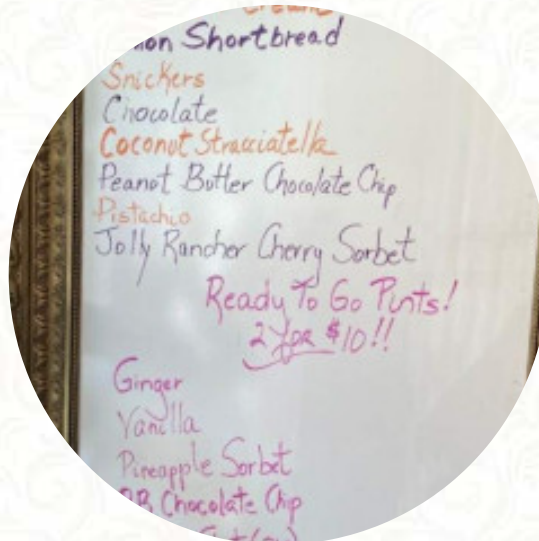 Shortbread
Snickers
Chocolate
Coconut Stracciatella
Peanut Butter Chocolate Chip
Pistachio
Jolly Rancher Cherry Sorbet
Ready To Go Pints!
2 for $10!!
Ginger
Vanilla
Pineapple Sorbet
PB Chocolate Chip